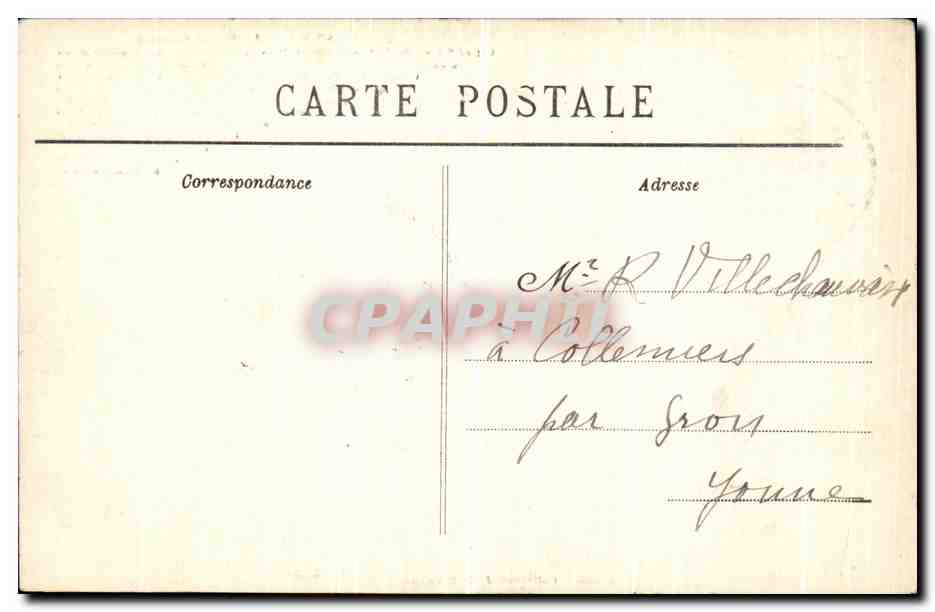 CARTE POSTALE
Correspondance
Adresse
Mr R Villechauvaix
CPAPHIL
à Collemiers
par Gron
Yonne